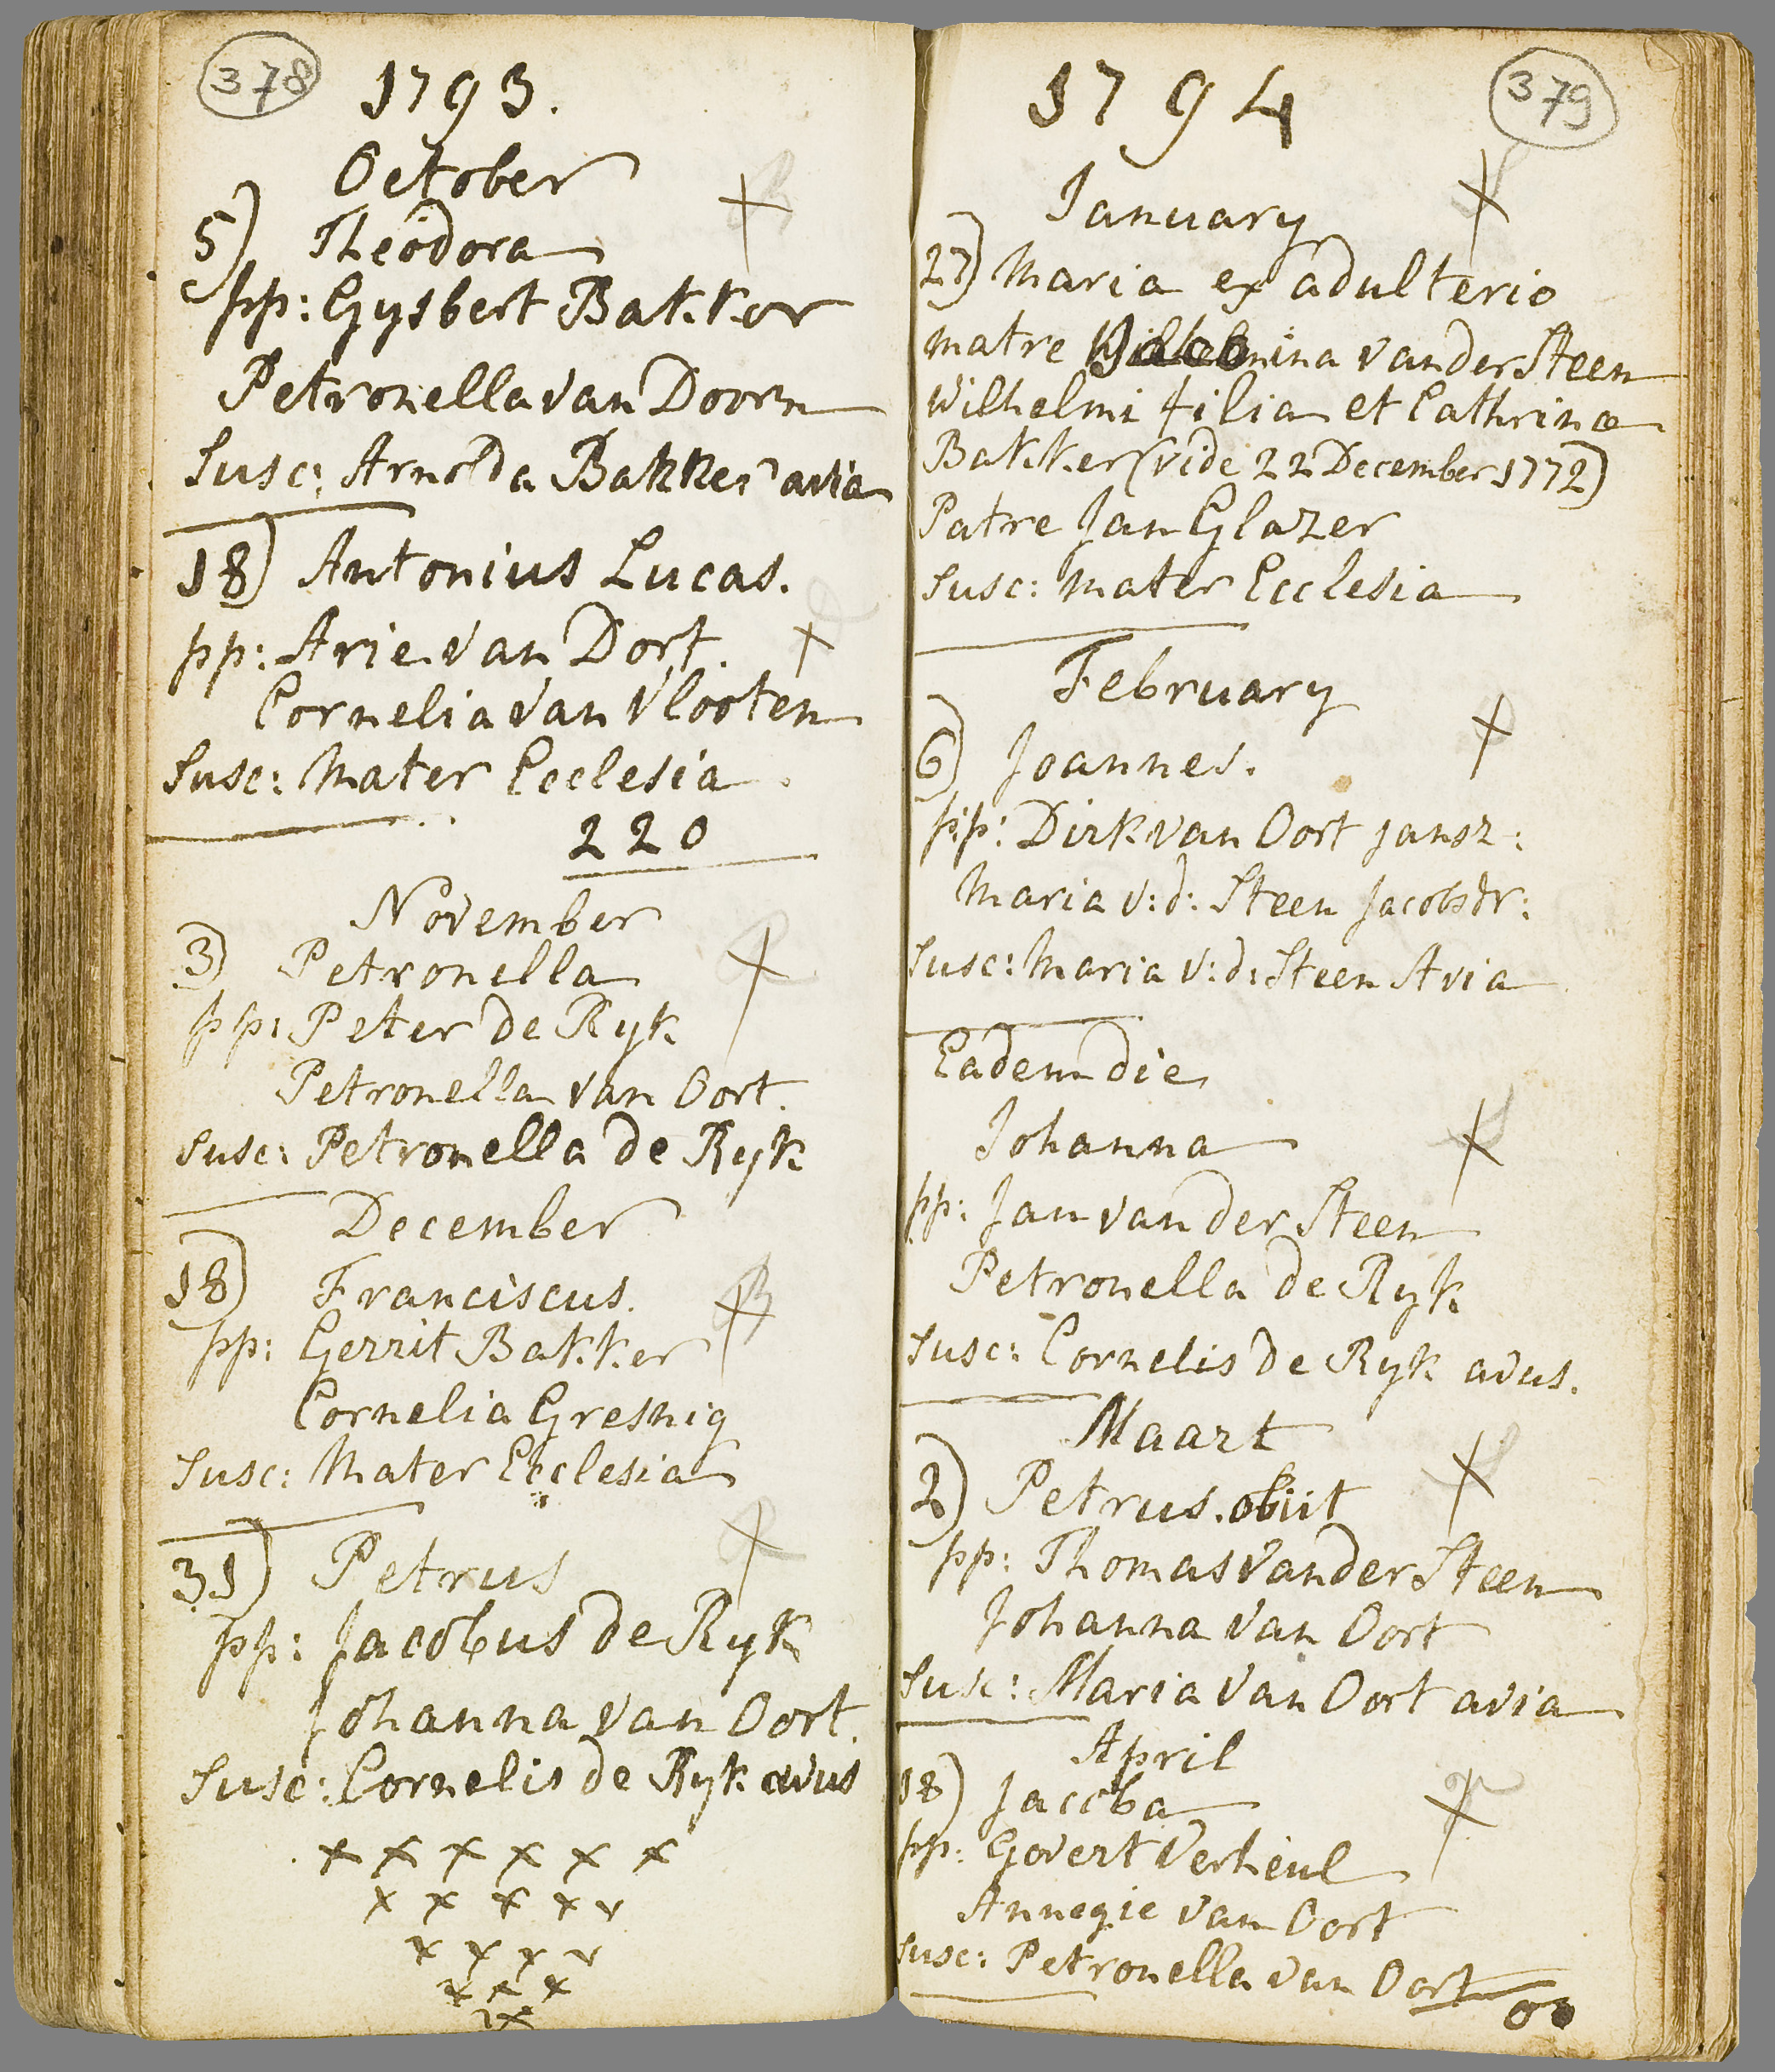 378
1793.
October
5) Theodora
pp: Gysbert Bakker
Petronella van Doorn
Susc: Arnolda Bakker avia
18) Antonius Lucas.
pp: Arie van Dort.
Cornelia van Vlooten
Susc: Mater Ecclesia
220
November
3) Petronella
pp: Peter de Ryk
Petronella van Oort.
Susc: Petronella de Ryk
December
18) Franciscus.
pp: Gerrit Bakker
Cornelia Gresnig
Susc: Mater Ecclesia
31) Petrus
pp: Jacobus de Ryk
Johanna van Oort.
Susc: Cornelis de Ryk avus
379
1794
January
27) Maria ex adulterio
matre van der Steen
Wilhelmi filia et Cathrinæ
Bakker (vide 22 December 1772)
Patre Jan Glazer
Susc: Mater Ecclesia
February
6) Joannes.
pp: Dirk van Oort Jansz:
Maria v:d: Steen Jacobsdr:
Susc: Maria v:d: Steen Avia
Eadem die
Johanna
pp: Jan van der Steen
Petronella de Ryk
Susc: Cornelis de Ryk avus.
Maart
2) Petrus. obiit
pp: Thomas van der Steen
Johanna van Oort
Susc: Maria van Oort avia
April
18) Jacoba
pp: Govert Verheul
Annegie van Oort
Susc: Petronella van Oort